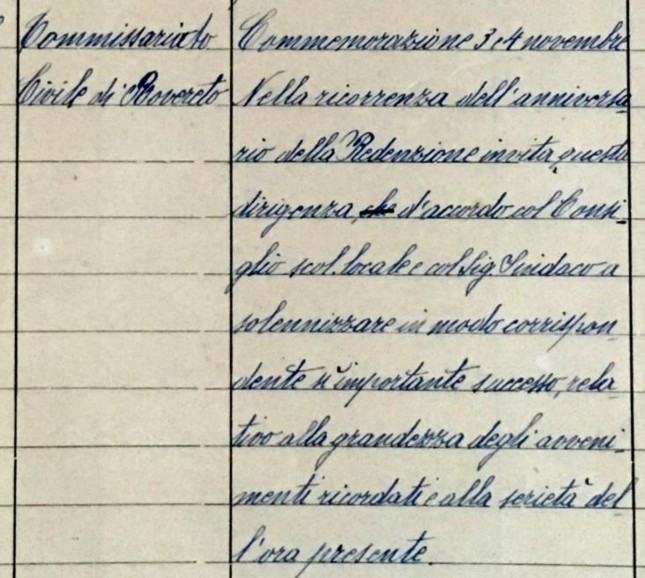 Commissariato
Civile di Rovereto
Commemorazione 3 e 4 novembre
Nella ricorrenza dell'anniversa-
rio della Redenzione invita questa
dirigenza, che d'accordo col Consi-
glio scol. locale e col Sig. Sindaco a
solennizzare in modo corrispon-
dente sì importante successo, rela-
tivo alla grandezza degli avveni-
menti ricordati e alla serietà del
l'ora presente.